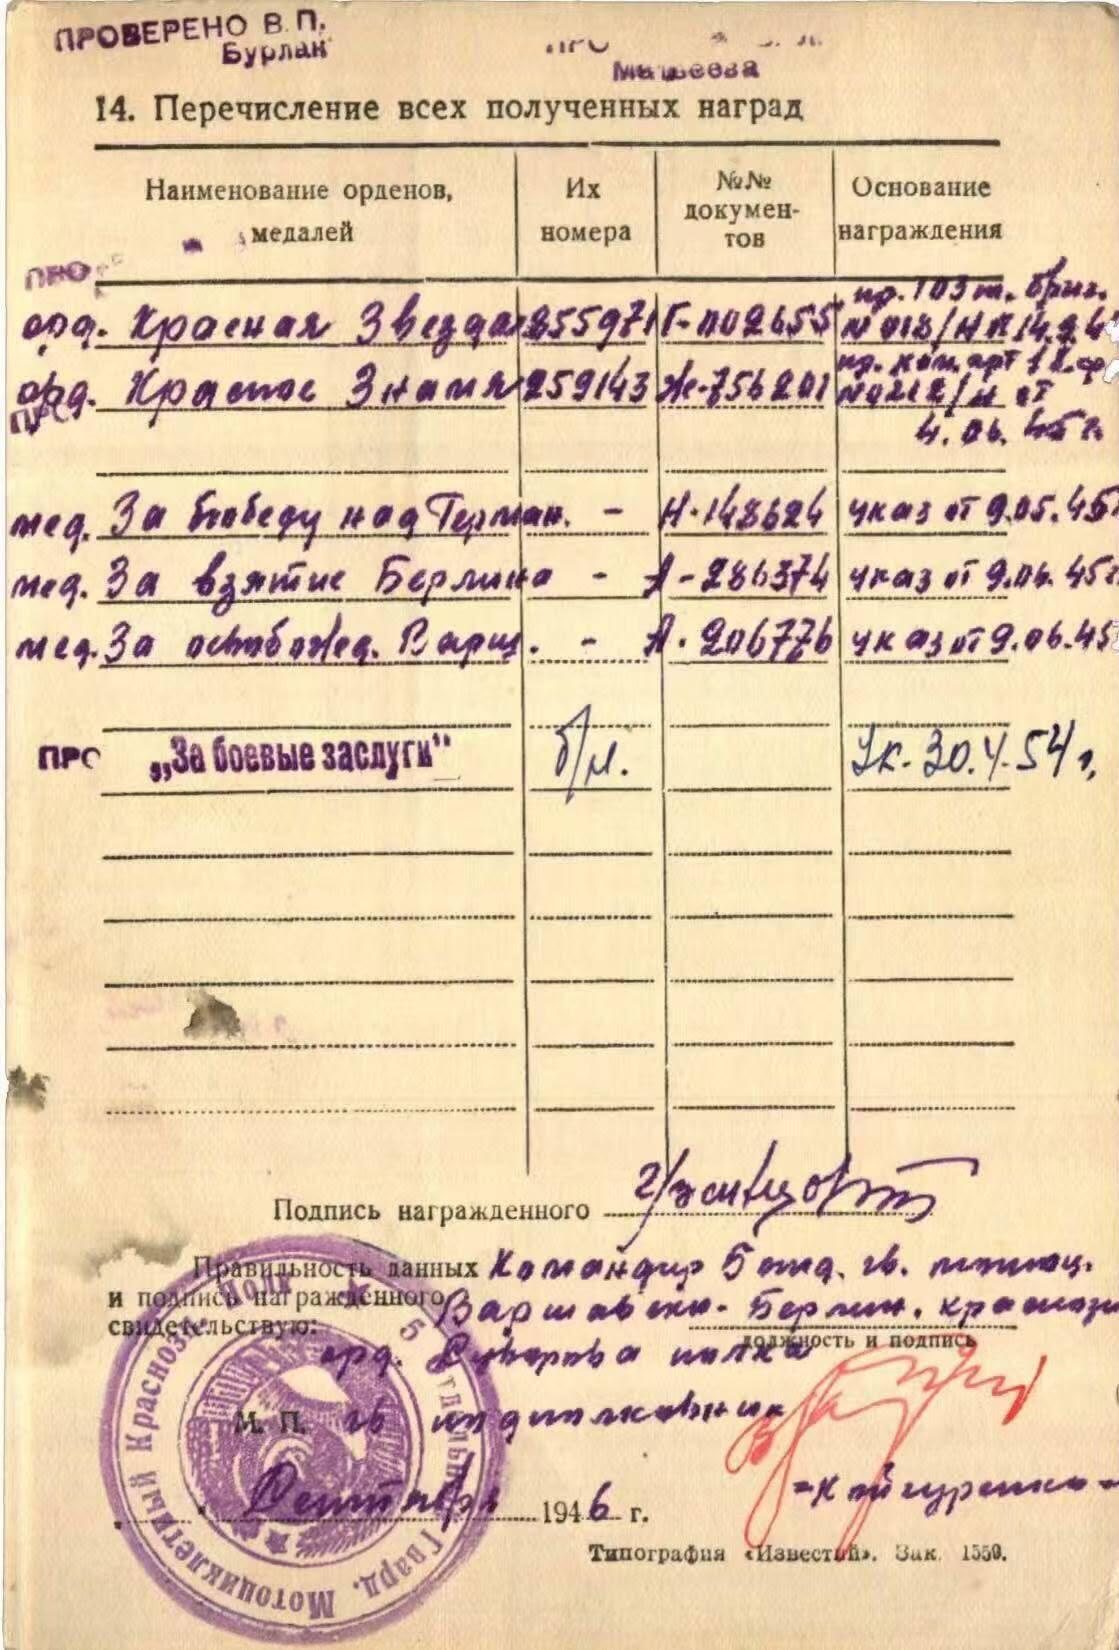 ПРОВЕРЕНО В.П.
Бурлан
ПРО
Матвеева
14. Перечисление всех полученных наград
Наименование орденов, медалей
Их номера
№№ документов
Основание награждения
ПРО
орд. Красная Звезда 255971 Г-П02655 пр. 103 т. бриг. №013/Н
орд. Красное Знамя 259143 Ж-756201 №0212/н от
4.06.45 г.
мед. За победу над Герман. - Н-148624 указ от 9.05.45
мед. За взятие Берлина - А-286374 указ от 9.06.45
мед. За освобожд. Варш. - А-206776 указ от 9.06.45
ПРО „За боевые заслуги" б/н. Ук. 30.4.54 г.
Подпись награжденного
Правильность данных Командир 5 отд. гв. мотоц.
и подпись награжденного Варшавско-Берлин. краснозн
свидетельствую:
должность и подпись
орд. Суворова полка
М. П. гв подполковник
Сентябрь 1946 г.
Типография «Известий». Зак. 1550.
5 отдельный Гвард. Мотоциклетный Краснозн Полк